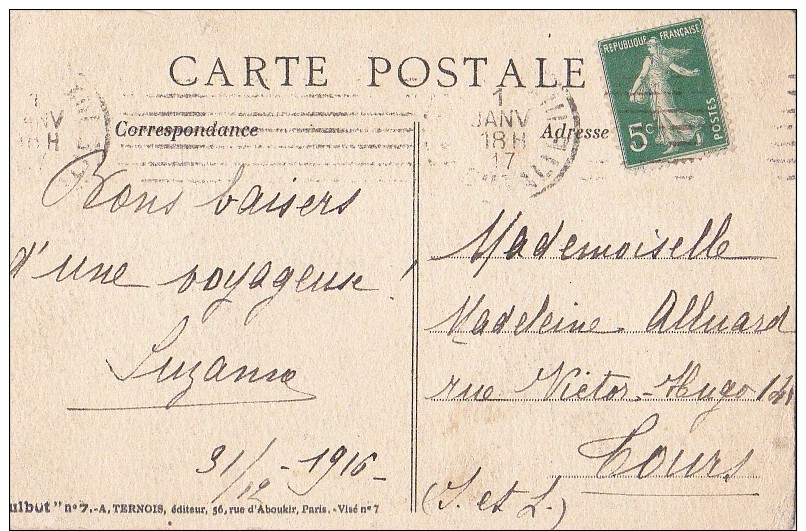 CARTE POSTALE
RÉPUBLIQUE FRANÇAISE
5c POSTES
1
JANV
18H
17
Correspondance
Adresse
Bons baisers
d'une voyageuse!
Suzanne
31/12 - 1916 -
Mademoiselle
Madeleine Alluard
rue Victor-Hugo
Tours
(I. et L.)
ulbot" nº7.-A. TERNOIS, éditeur, 56, rue d'Aboukir, Paris. -Visé nº 7